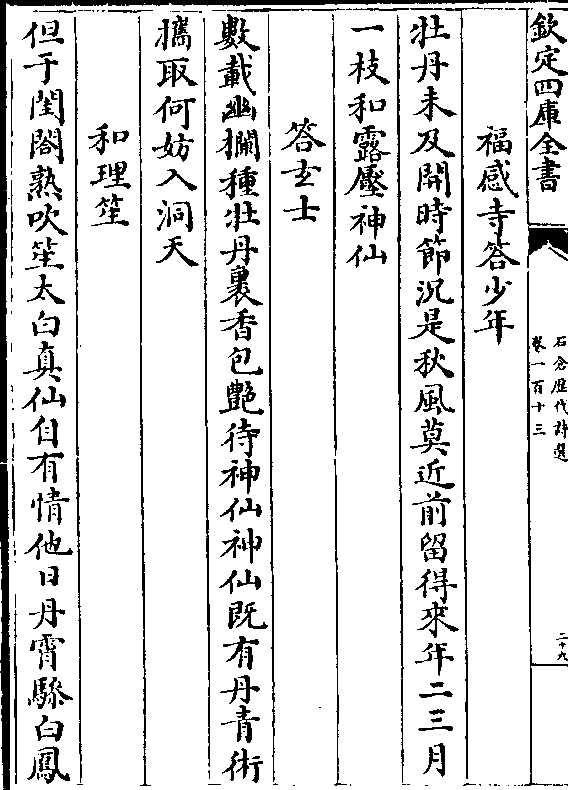 欽定四庫全書
石倉歷代詩選
卷一百十三
二十九
福感寺答少年
牡丹未及開時節況是秋風莫近前留得來年二三月
一枝和露壓神仙
答玄士
數載幽欄種牡丹裹香包艷待神仙神仙既有丹青術
攜取何妨入洞天
和理笙
但于閨閤熟吹笙太白真仙自有情他日丹霄驂白鳳